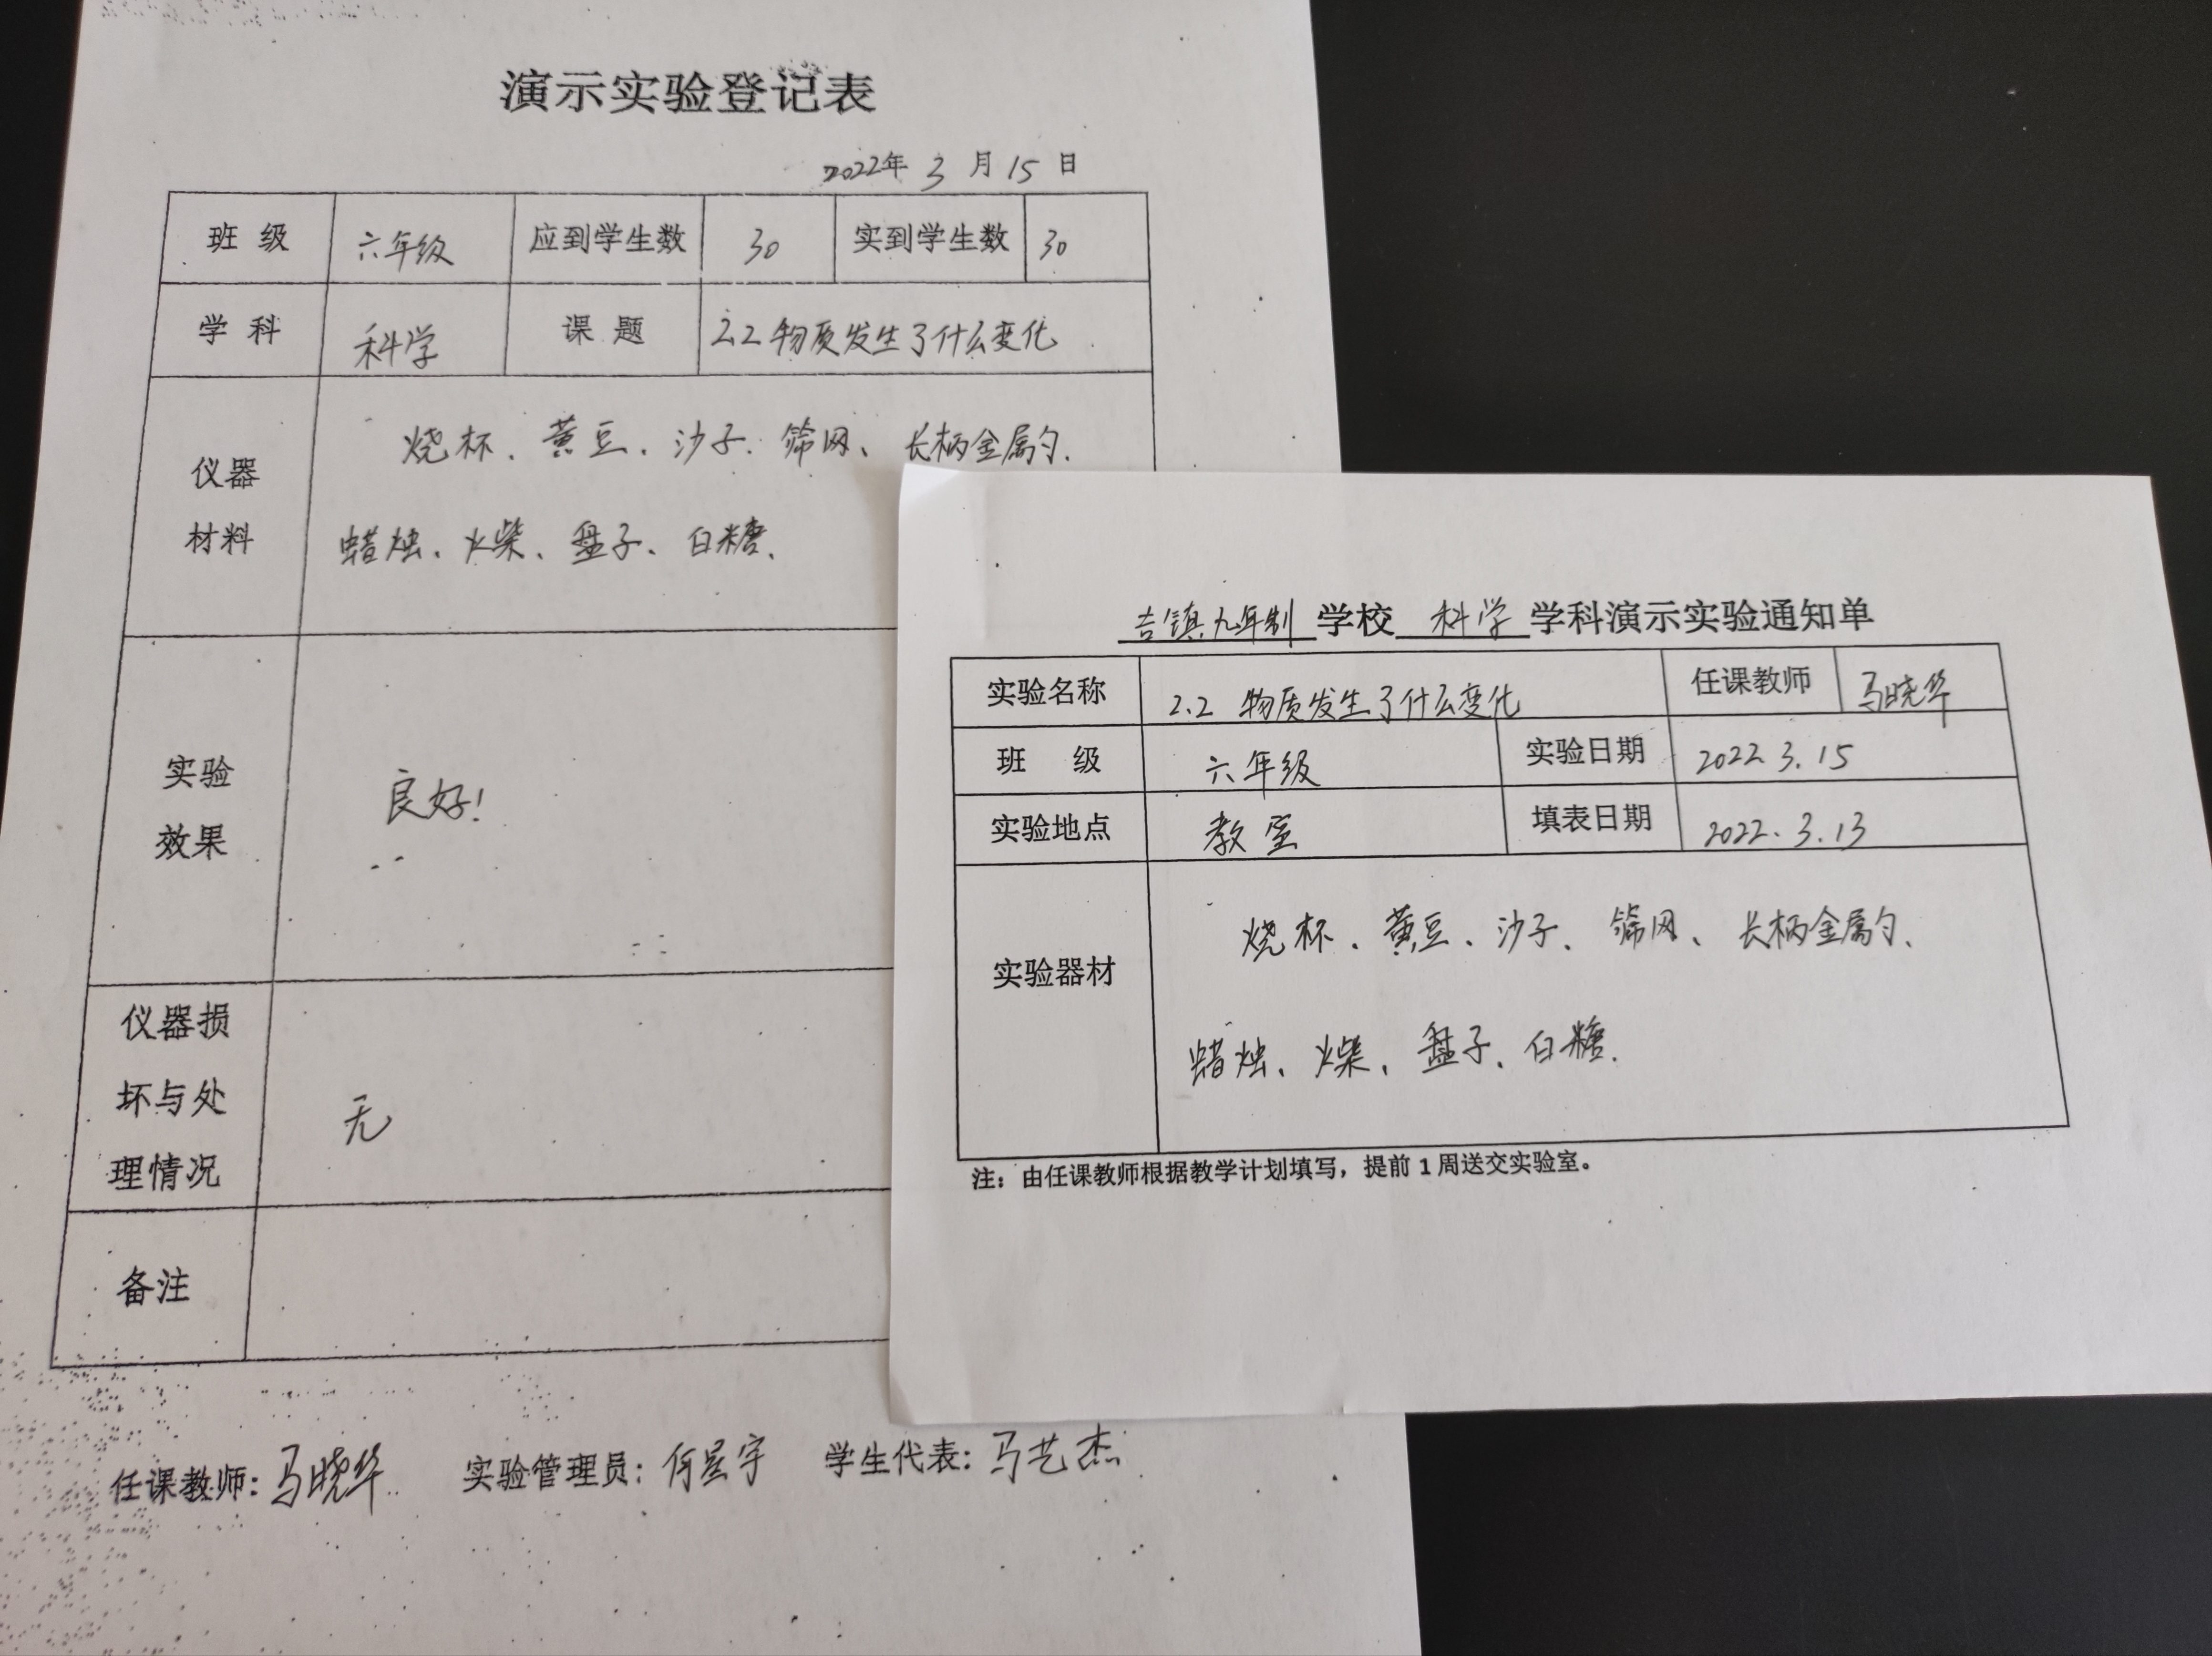 演示实验登记表
2022年 3 月 15 日
班 级 六年级 应到学生数 30 实到学生数 30
学 科 科学 课 题 2.2 物质发生了什么变化
仪器
材料
烧杯、黄豆、沙子、筛网、长柄金属勺、
蜡烛、火柴、盘子、白糖、
实验
效果
良好!
仪器损
坏与处
理情况
无
备注
任课教师: 马晓华 实验管理员: 何星宇 学生代表: 马艺杰
吉镇九年制 学校 科学 学科演示实验通知单
实验名称 2.2 物质发生了什么变化 任课教师 马晓华
班 级 六年级 实验日期 2022.3.15
实验地点 教室 填表日期 2022.3.13
实验器材
烧杯、黄豆、沙子、筛网、长柄金属勺、
蜡烛、火柴、盘子、白糖.
注：由任课教师根据教学计划填写，提前 1 周送交实验室。